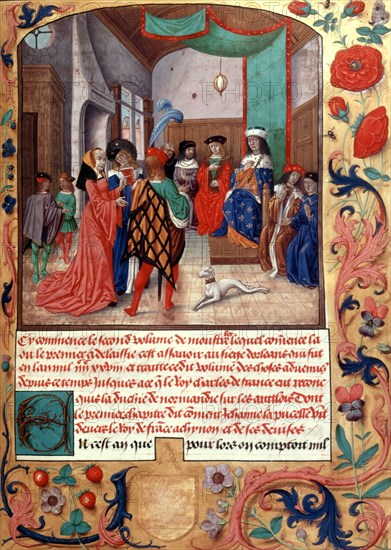 Cy commence le second volume de monstrelet lequel comence la
ou le premier delaisse est assavoir au siege dorleans qui fut
en lan mil iiijc xxviij et traictie du volume des choses advenues
depuis ce temps jusques ace que le Roy charles de france eut recone
quis la duchie de normandie sur les anglois Dont
le premier chapitre dit coment Jehanne la pucelle vint
devers le Roy de france achynon et de ses devises
En cest an que pour lors on comptoit mil